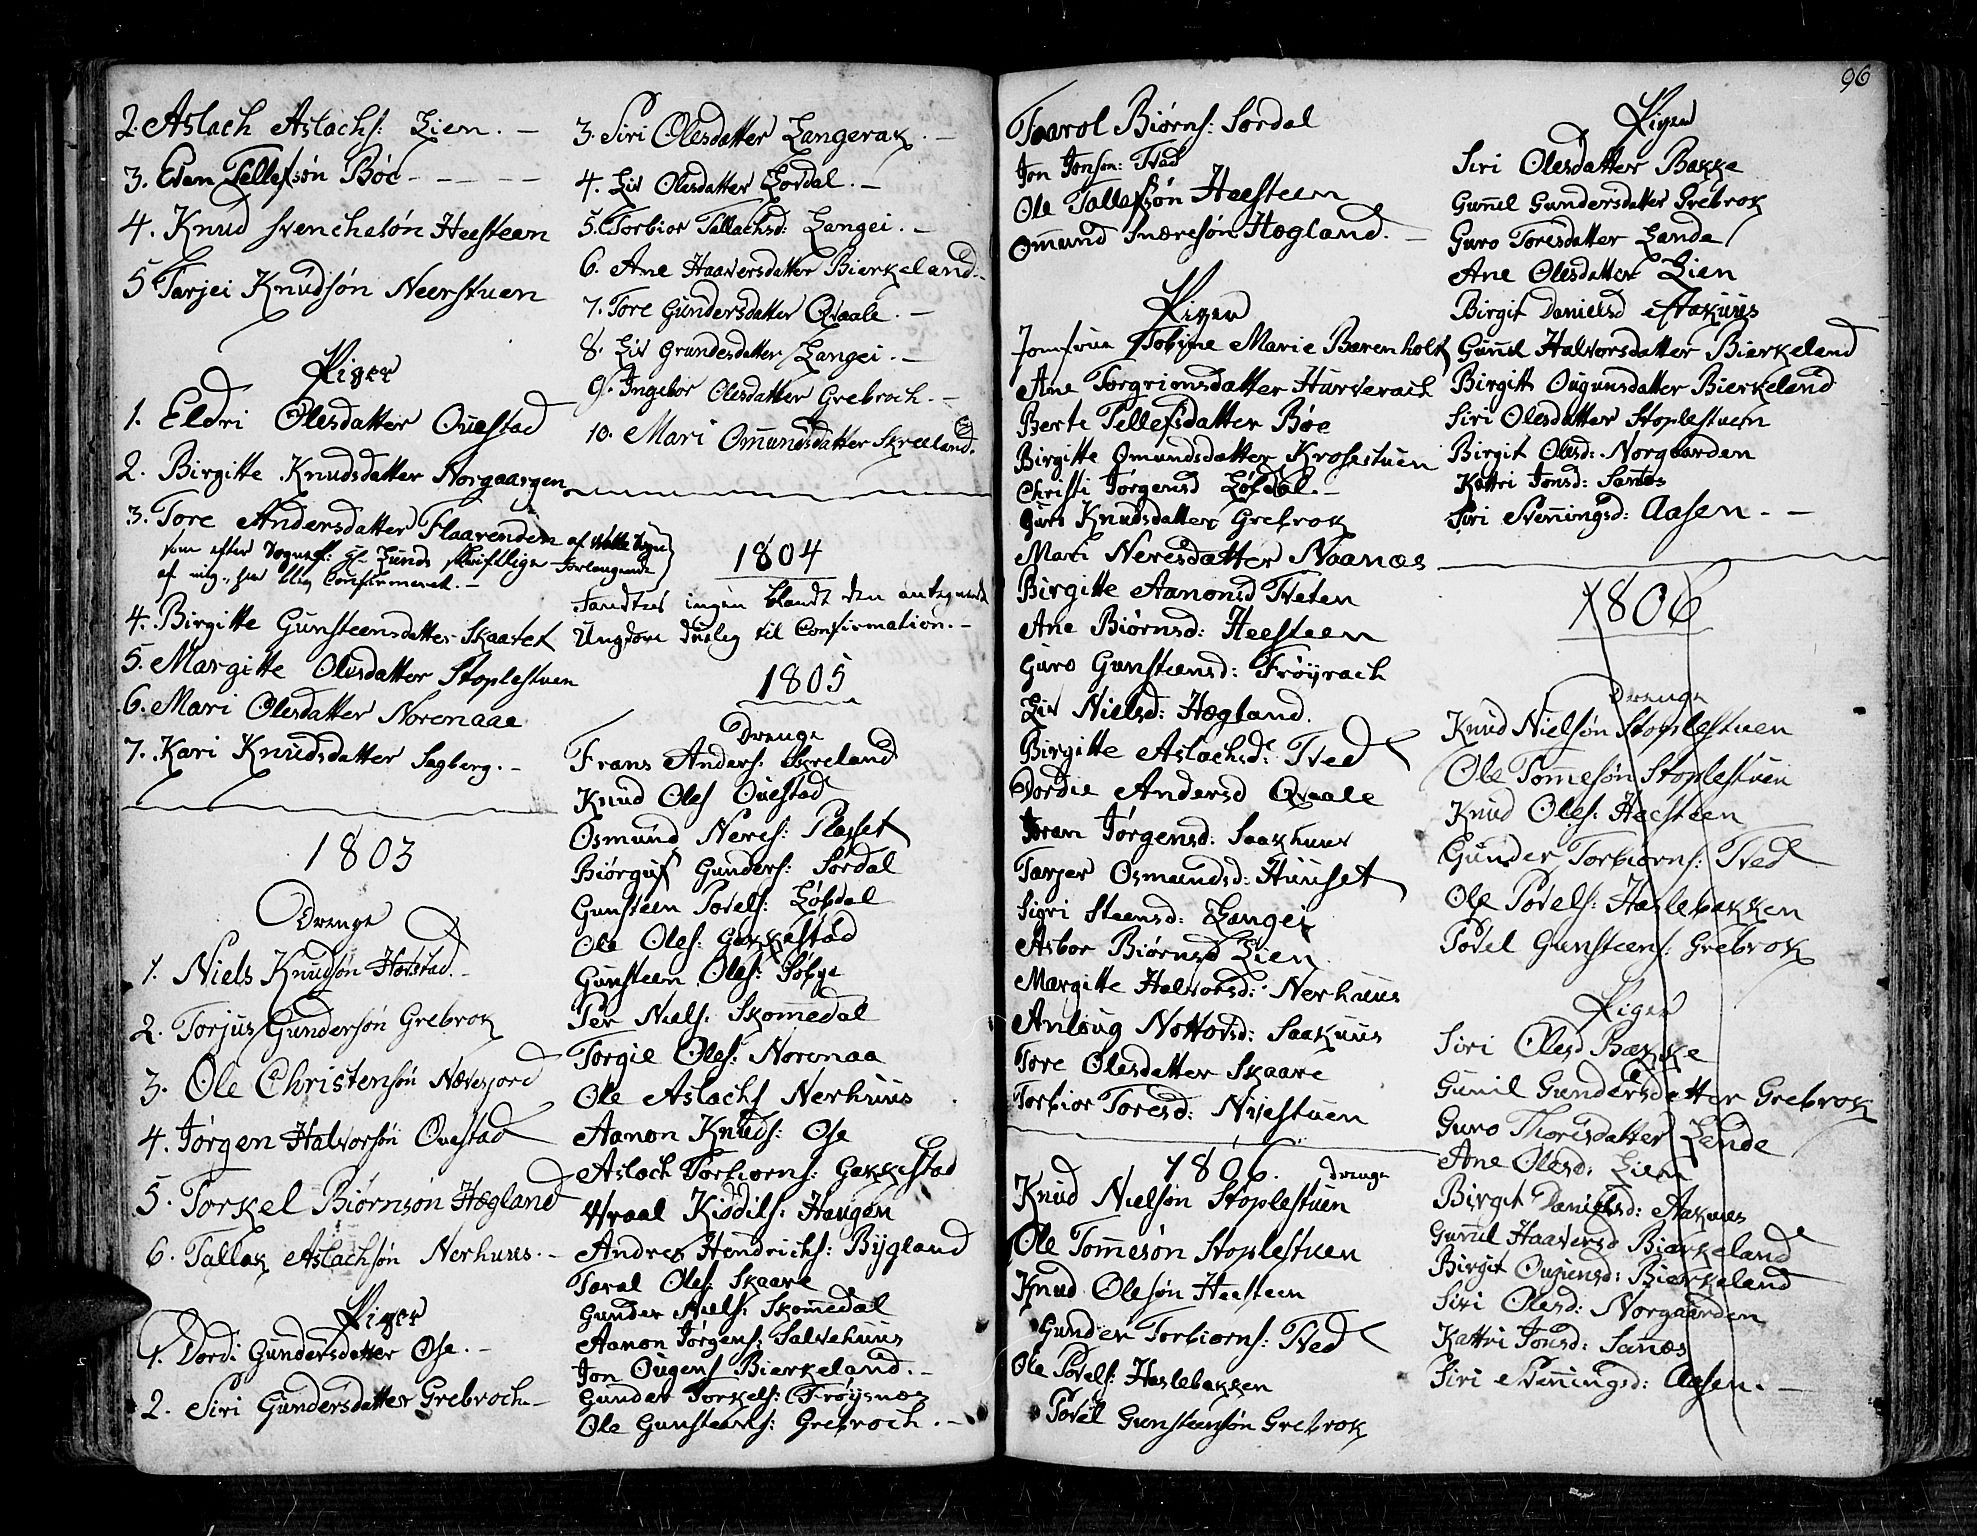 2. Aslach Aslachs: Lien. –
3. Even Tellefsøn Bøe - - - -
4. Knud Svenchesøn Heesteen
5 Tarjei Knudsøn Neerstuen
Piger
1. Eldri Olesdatter Ouestad
2. Birgitte Knudsdatter Norgaargen
3. Tore Andersdatter Flaarenden af
som efter Sognef: Hr Lunds skriftlige Forlangende
af mig, her blev Confirmeret. –
4. Birgitte Gunsteensdatter Skaaret
5. Margitte Olesdatter Stoplestuen
6. Mari Olesdatter Norenaae
7. Kari Knudsdatter Sagberg. –
1803
Drenge
1. Niels Knudsøn Hovstad. –
2. Torjus Gundersøn Grebrok
3. Ole Christensøn
4. Jørgen Halvorsøn Ouestad
5. Torkel Biørnsøn Hægland
6. Tallak Aslachsøn Nerhuus. –
Piger
1. Dordi Gundersdatter Ose. –
2. Siri Gundersdatter Grebroch –
3. Siri Olesdatter Langerak. –
4. Liv Olesdatter Lordal. –
5. Torbior Tallachsd: Langei. –
6. Ane Haaversdatter Bierkeland. –
7. Tore Gundersdatter Qvaale. –
8. Liv Grundesdatter Langei. –
9. Ingebor Olesdatter Grebroch. –
10. Mari Omundsdatter Skreeland.
1804
Fandtes ingen blandt den antegnede
Ungdom duelig til Confirmation. –
1805
Drenge
Frans Anders: Skreland
Knud Oles Ouestad
Osmund Neres: Plasset
Biørguf Gunders: Sordal
Gunsteen Povels: Løfdal
Ole Oles: Gakkestad
Gunsteen Oles: Søbye
Per Niels: Skomedal
Torgie Oles: Norenaa
Ole Aslachs Nerhuus
Aanon Knuds: Ose
Aslach Torbiorns: Gakkestad
Wraal Kiødils: Haugen
Andres Hendrichs: Bygland
Toral Oles: Skaare
Gunder Niels: Skomedal
Aanon Jørgens: Salvehuus
Jon Ougens Bierkeland. –
Gunder Torkels: Frøysnæs
Ole Gunsteens: Grebroch. –
96
Taarol Biørns: Sordal
Jon Jonson: Tved
Ole Tallefsøn Heesteen
Omund Snæresøn Hægland. –
Piger
Jomfrue Tobine Marie Barenholt
Ane Torgrimsdatter Hurverach
Berte Tellefsdatter Bøe
Birgitte Omundsdatter Krosestuen
Christi Jørgensd Løfdal. –
Guro Knudsdatter Grebrok
Mari Neresdatter Noanæs
Birgitte Aanonsd Tveten
Ane Biørnsd: Heesteen
Guro Gunsteensd: Frøyrach
Liv Nielsd: Hægland.
Birgitte Aslachsd: Tved
Dordie Andersd Qvaale
Joran Jørgensd: Saakhuus
Tarjer Osmundsd: Huuset
Sigri Steensd: Langei
Asbor Biørnsd Lien
Margitte Halvorsd: Nerhuus
Anloug Nottovsd: Saakuus
Tore Olesdatter Skaare
Torbior Toresd: Nyestuen
1806. Drenge
Knud Nielsøn Stoplestuen
Ole Tomesøn Stoplestuen
Knud Olesøn Heesteen
Gunder Torbiorns: Tved
Ole Povels: Haslebakken
Povel Gunsteensøn Grebrok
Piger
Siri Olesdatter Bakke
Gunnel Gundersdatter Grebrok
Guro Toresdatter Lande
Ane Olesdatter Lien
Birgit Danielsd Aakuus
Gunnil Halvorsdatter Bierkeland
Birgitt Ougunsdatter Bierkeland
Siri Olesdatter Stoplestuen
Birgit Olesd: Norgaarden
Kattri Jonsd: Sanæs
Siri Svenningsd: Aasen. – –
1806
Drenge
Knud Nielsøn Stoplestuen
Ole Tomesøn Stoplestuen
Knud Oles: Heesteen
Gunder Torbiorns: Tved
Ole Povels: Haslebakken
Povel Gunsteens: Grebrok
Piger
Siri Olesd Bakke
Gunil Gundersdatter Grebrok
Guro Thorisdatter Lende
Ane Olesd: Lien
Birgit Danielsd: Aakuus
Gunnil Haaversd Bierkeland
Birgit Ougunsd: Bierkeland
Siri Olesd: Norgaarden
Kattri Jonsd: Sanæs
Siri Svenningsd: Aasen. –